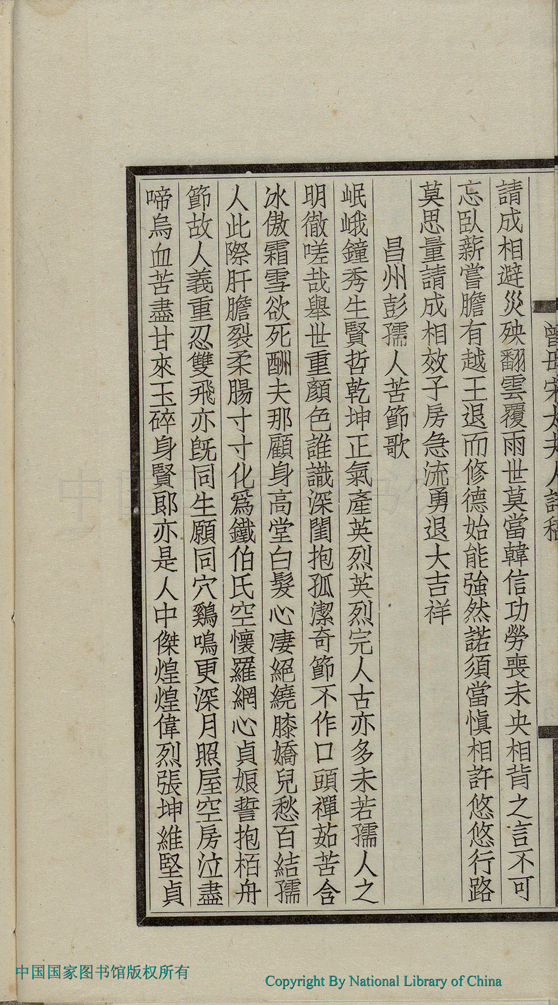 曾母宋太夫人詩稿
請成相避災殃翻雲覆雨世莫當韓信功勞喪未央相背之言不可
忘臥薪嘗膽有越王退而修德始能強然諾須當愼相許悠悠行路
莫思量請成相效子房急流勇退大吉祥
昌州彭孺人苦節歌
岷峨鐘秀生賢哲乾坤正氣產英烈英烈完人古亦多未若孺人之
明徹嗟哉舉世重顏色誰識深閨抱孤潔奇節不作口頭禪茹苦含
冰傲霜雪欲死酬夫那顧身高堂白髮心凄絕繞膝嬌兒愁百結孺
人此際肝膽裂柔腸寸寸化爲鐵伯氏空懷羅網心貞娘誓抱栢舟
節故人義重忍雙飛亦旣同生願同穴鷄鳴更深月照屋空房泣盡
啼烏血苦盡甘來玉碎身賢郎亦是人中傑煌煌偉烈張坤維堅貞
中国国家图书馆版权所有
Copyright By National Library of China